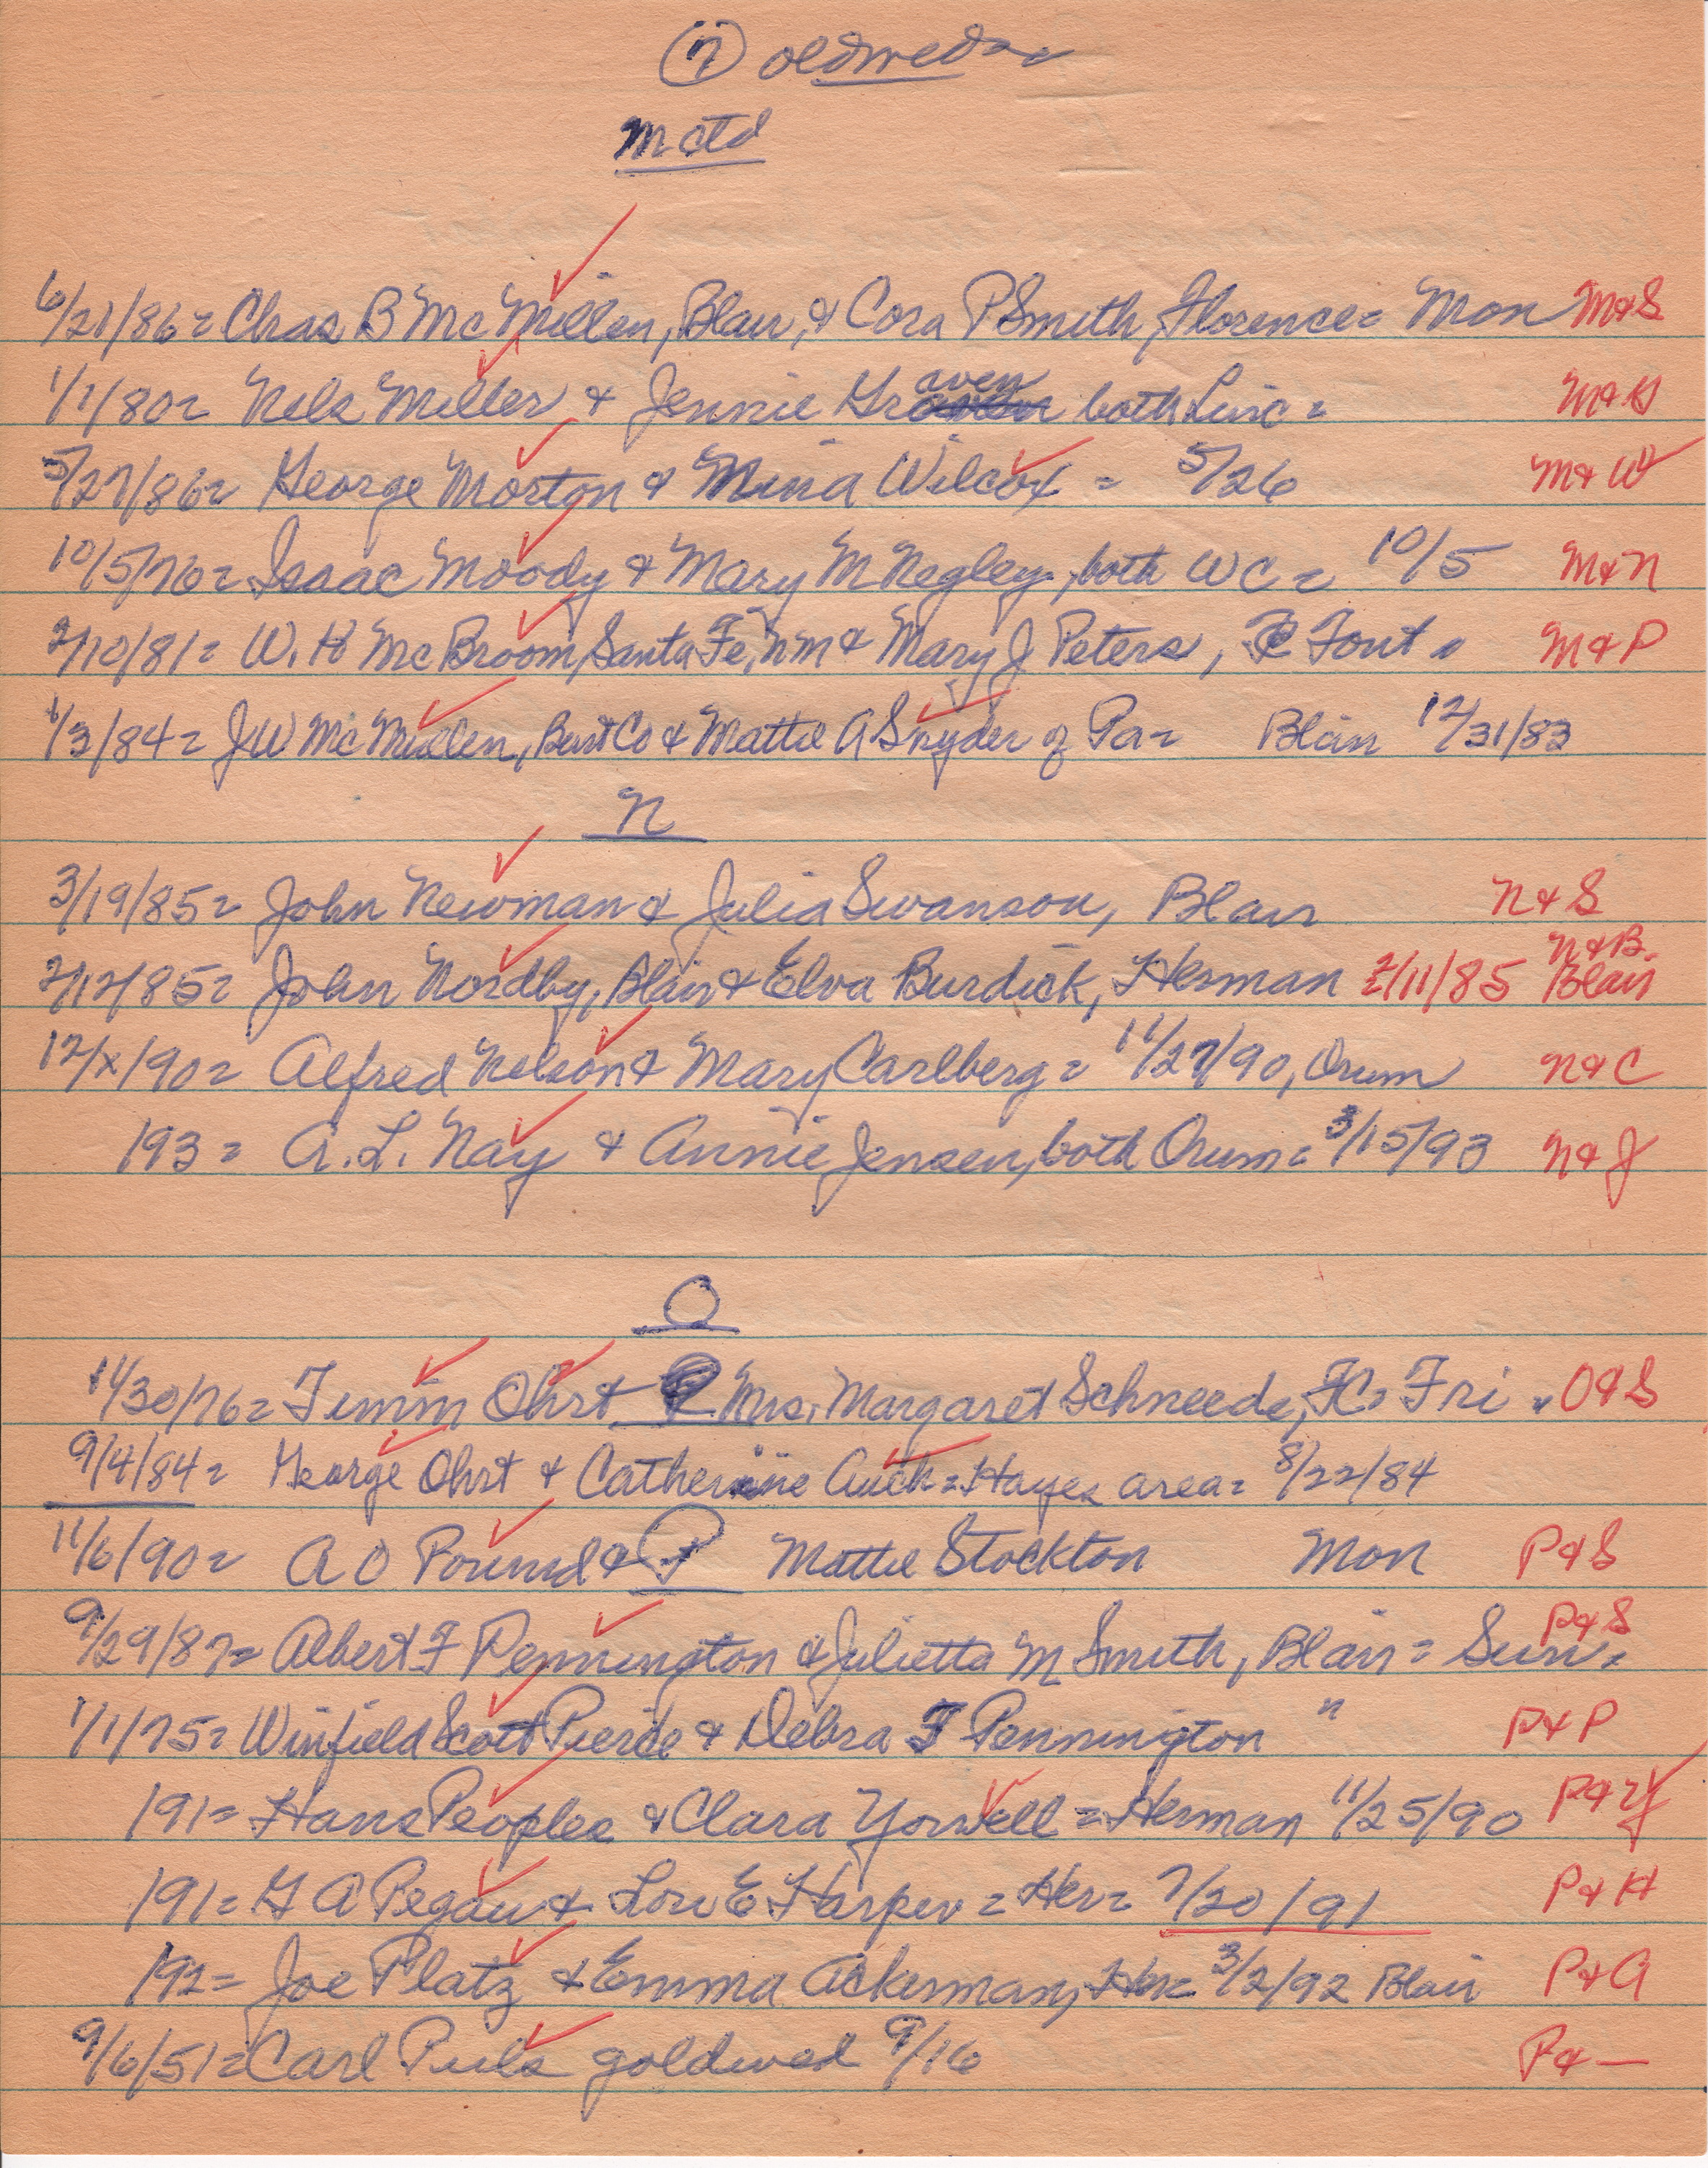 (7) oldweds
M ctd
6/21/86= Chas B McMillen, Blair, & Cora P Smith, Florence= Mon M&S
1/1/80= Nels Miller & Jennie Graven both Linc = M&G
5/27/86= George Morton & Mina Wilcox = 5/26 M&W
10/5/76= Isaac Moody & Mary M Negley, both WC = 10/5 M&N
2/10/81= W.H McBroom, Santa Fe, NM & Mary J Peters, Ft Font = M&P
1/3/84= JW McMullen, Burt Co & Mattie A Snyder of Pa= Blair 12/31/83
N
3/19/85= John Newman & Julia Swanson, Blair N&S
2/12/85= John Nordby, Blair & Elva Burdick, Herman 2/11/85 Blair N&B.
12/x/90= Alfred Nelson & Mary Carlberg= 11/27/90, Orum N&C
193= A.L. Nay & Annie Jensen, both Orum= 3/15/93 N&J
O
11/30/76= Timm Ohrt Mrs. Margaret Schneede, FC= Fri O&S
9/4/84= George Ohrt & Catherine Auch= Hayes area= 8/22/84
11/6/90= A O Pound & P Mattie Stockton Mon P&S
9/29/87= Albert F Pennington & Julietta M Smith, Blair= Sun= P&S
1/1/75= Winfield Scott Pierce & Debra F Pennington " P&P
191= Hans Peoples & Clara Yorwell= Herman 11/25/90 P&Y
191= G A Pegau & Lou E Harper= Her= 7/20/91 P&H
192= Joe Platz & Emma Ackerman, Her= 3/2/92 Blair P&A
9/6/51= Carl Puls goldwed 9/16 P&—